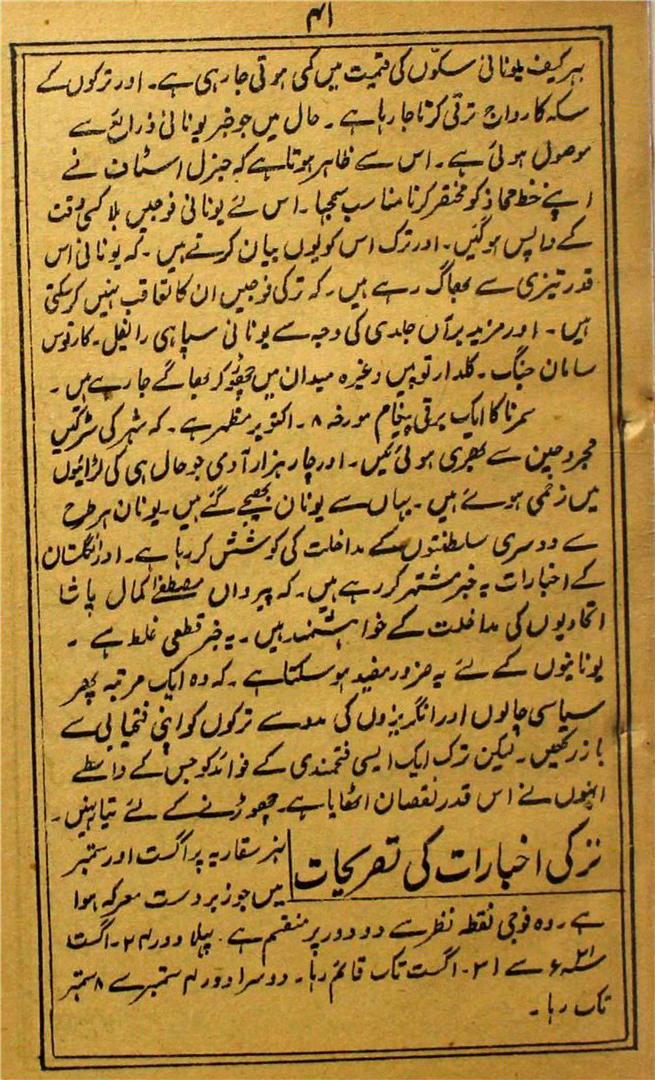 ۴۱
بہر کیف یونانی سکوں کی قیمت میں کمی ہوتی جا رہی ہے۔ اور ترکوں کے
سکہ کا رواج ترقی کرتا جا رہا ہے۔ حال میں جو خبر یونانی ذرائع سے
موصول ہوئی ہے۔ اس سے ظاہر ہوتا ہے کہ جنرل اسٹاف نے
اپنے خط محاذ کو مختصر کرنا مناسب سمجہا۔ اس لئے یونانی فوجیں بلا کسی دقت
کے واپس ہوگئیں۔ اور ترک اس کو یوں بیان کرتے ہیں۔ کہ یونانی اس
قدر تیزی سے بھاگ رہے ہیں۔ کہ ترکی فوجیں ان کا تعاقب نہیں کرسکتی
ہیں۔ اور مزید برآں جلدی کی وجہ سے یونانی سپاہی رائفل۔ کارتوس
سامان جنگ۔ گلدار توپیں وغیرہ میدان میں چھوڑ کر بھاگے جا رہے ہیں۔
سمرنا کا ایک برقی پیغام مورخہ ۸۔ اکتوبر مظہر ہے۔ کہ شہر کی سڑکیں
مجروحین سے بھری ہوئی ہیں۔ اور چار ہزار آدمی جو حال ہی کی لڑائیوں
میں زخمی ہوئے ہیں۔ یہاں سے یونان بھیجے گئے ہیں۔ یونان ہر طرح
سے دوسری سلطنتوں کے مداخلت کی کوشش کر رہا ہے۔ اور انگلستان
کے اخبارات یہ خبر مشتہر کر رہے ہیں۔ کہ پیرواں مصطفےٰ کمال پاشا
اتحادیوں کی مداخلت کے خواہشمند ہیں۔ یہ خبر قطعی غلط ہے۔
یونانیوں کے لئے یہ ضرور مفید ہوسکتا ہے۔ کہ وہ ایک مرتبہ پھر
سیاسی چالوں اور انگریزوں کی مدد سے ترکوں کو اپنی فتحیابی سے
باز رکھیں۔ لیکن ترک ایک ایسی فتحمندی کے فوائد کو جس کے واسطے
انہوں نے اس قدر نقصان اٹھایا ہے۔ چھوڑنے کے لئے تیار نہیں۔
ترکی اخبارات کی تصریحات
نہر سقاریہ پر اگست اور ستمبر
میں جو زبردست معرکہ ہوا
ہے۔ وہ فوجی نقطہ نظر سے دو دور پر منقسم ہے۔ پہلا دور ۲۴۔ اگست
۲۱ء سے ۳۱۔ اگست تک قائم رہا۔ دوسرا دور ۴ ستمبر سے ۸ ستمبر
تک رہا۔